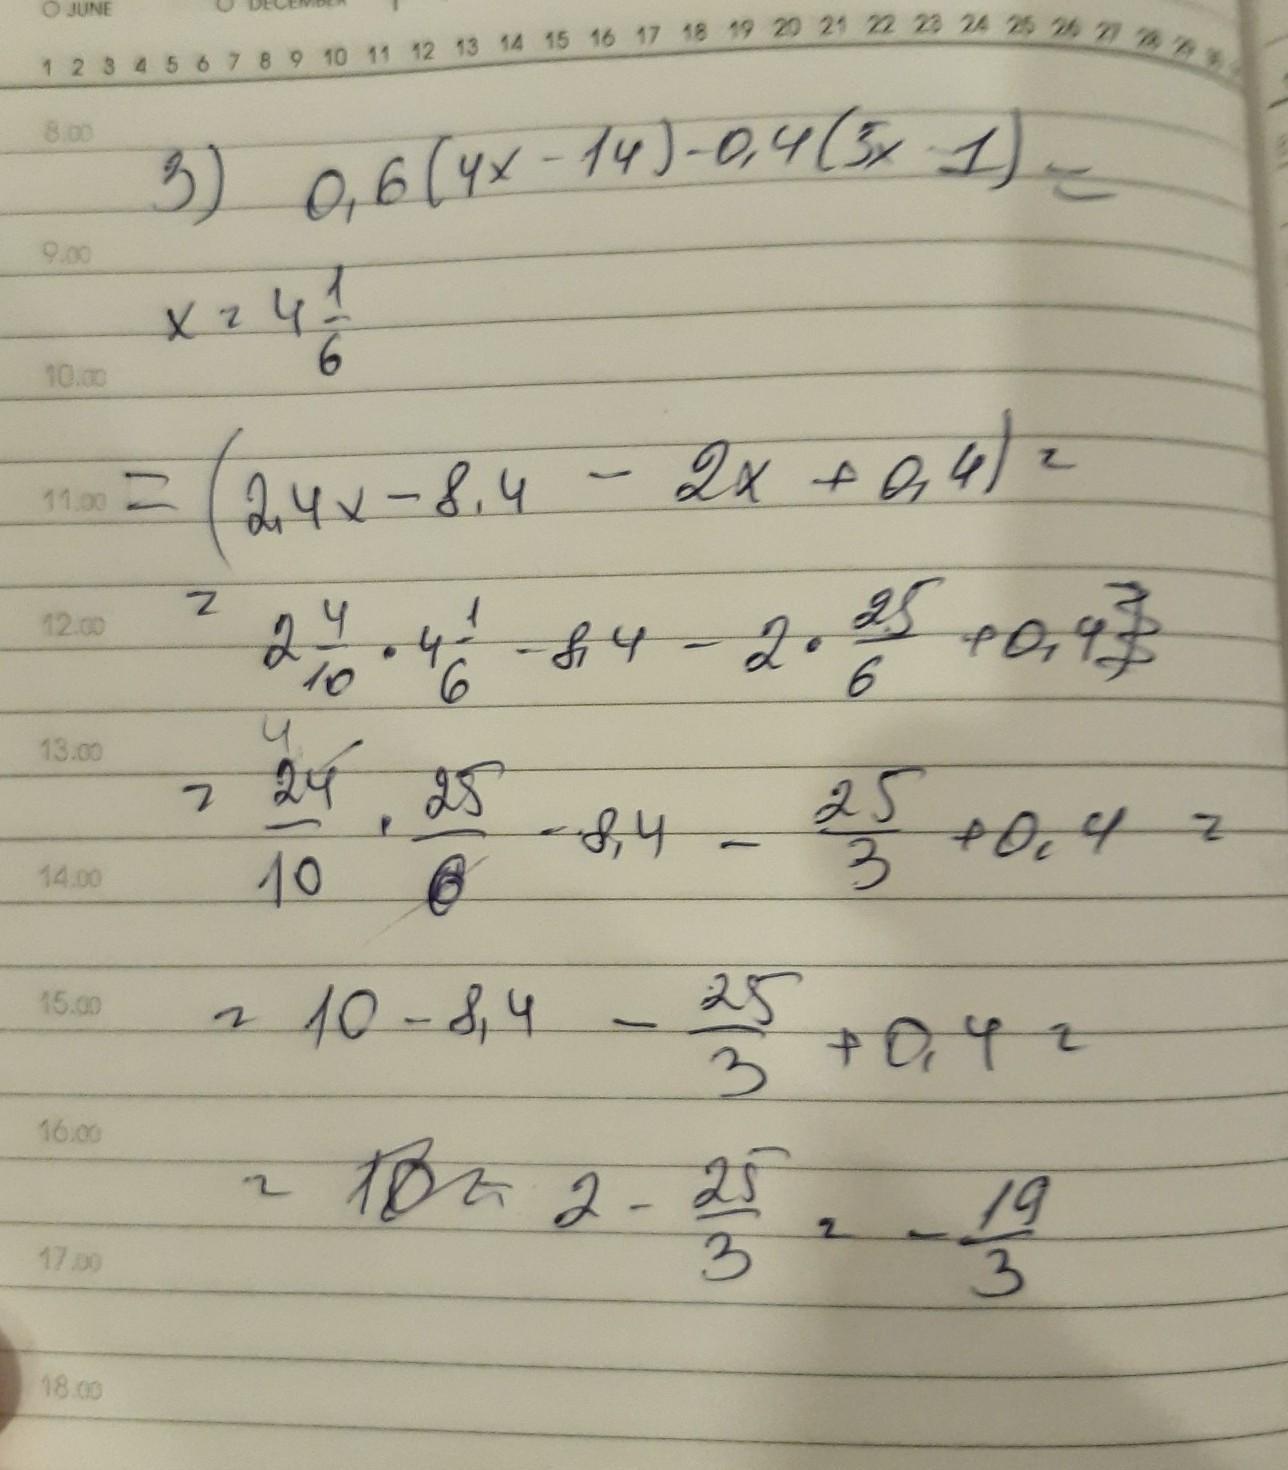 JUNE DECEMBER
1 2 3 4 5 6 7 8 9 10 11 12 13 14 15 16 17 18 19 20 21 22 23 24 25 26 27 28 29 30
8.00
3) 0,6(4x - 14) - 0,4(5x - 1) =
9.00
x = 4 1/6
10.00
11.00 = (2,4x - 8,4 - 2x + 0,4) =
12.00 = 2 4/10 · 4 1/6 - 8,4 - 2 · 25/6 + 0,4
13.00
4
= 24/10 · 25/6 - 8,4 - 25/3 + 0,4 =
14.00
15.00 = 10 - 8,4 - 25/3 + 0,4 =
16.00
= 2 - 25/3 = - 19/3
17.00
18.00